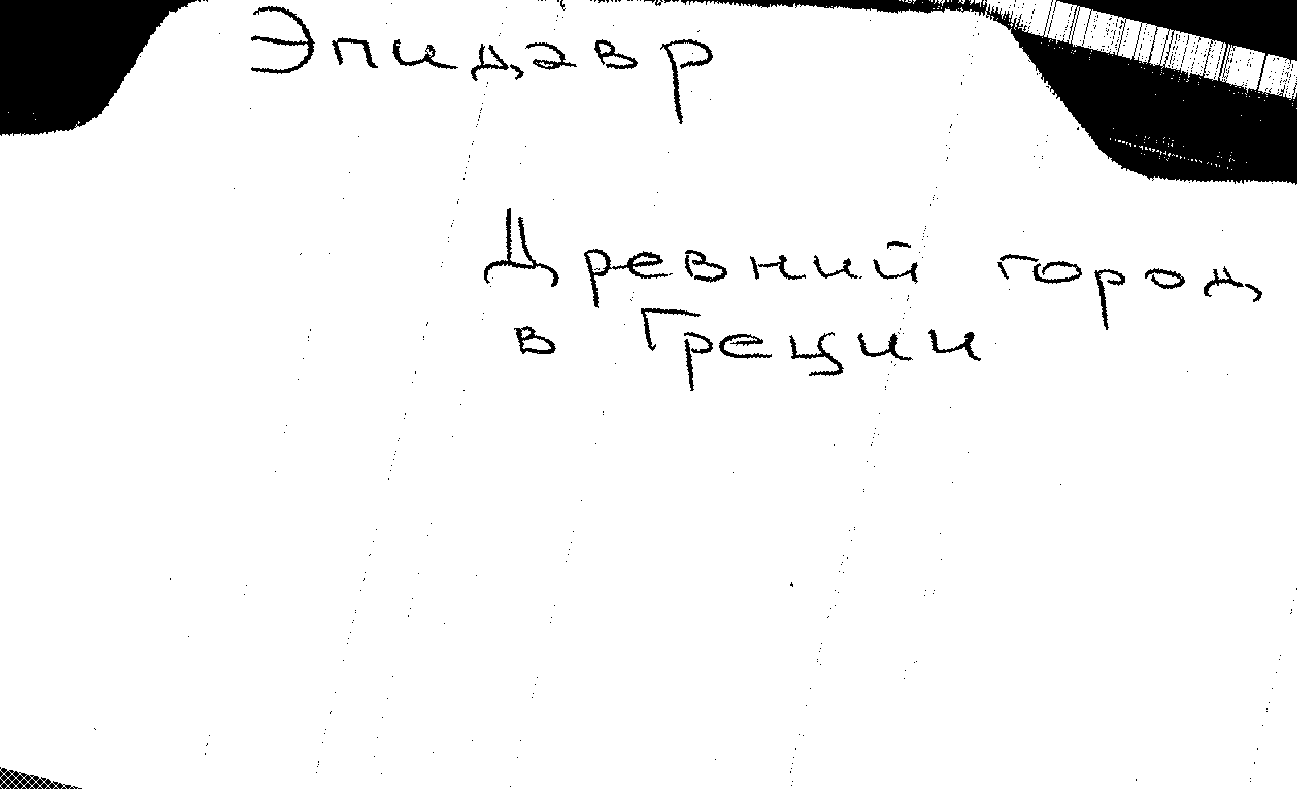 Эпидавр
Древний город
в Греции